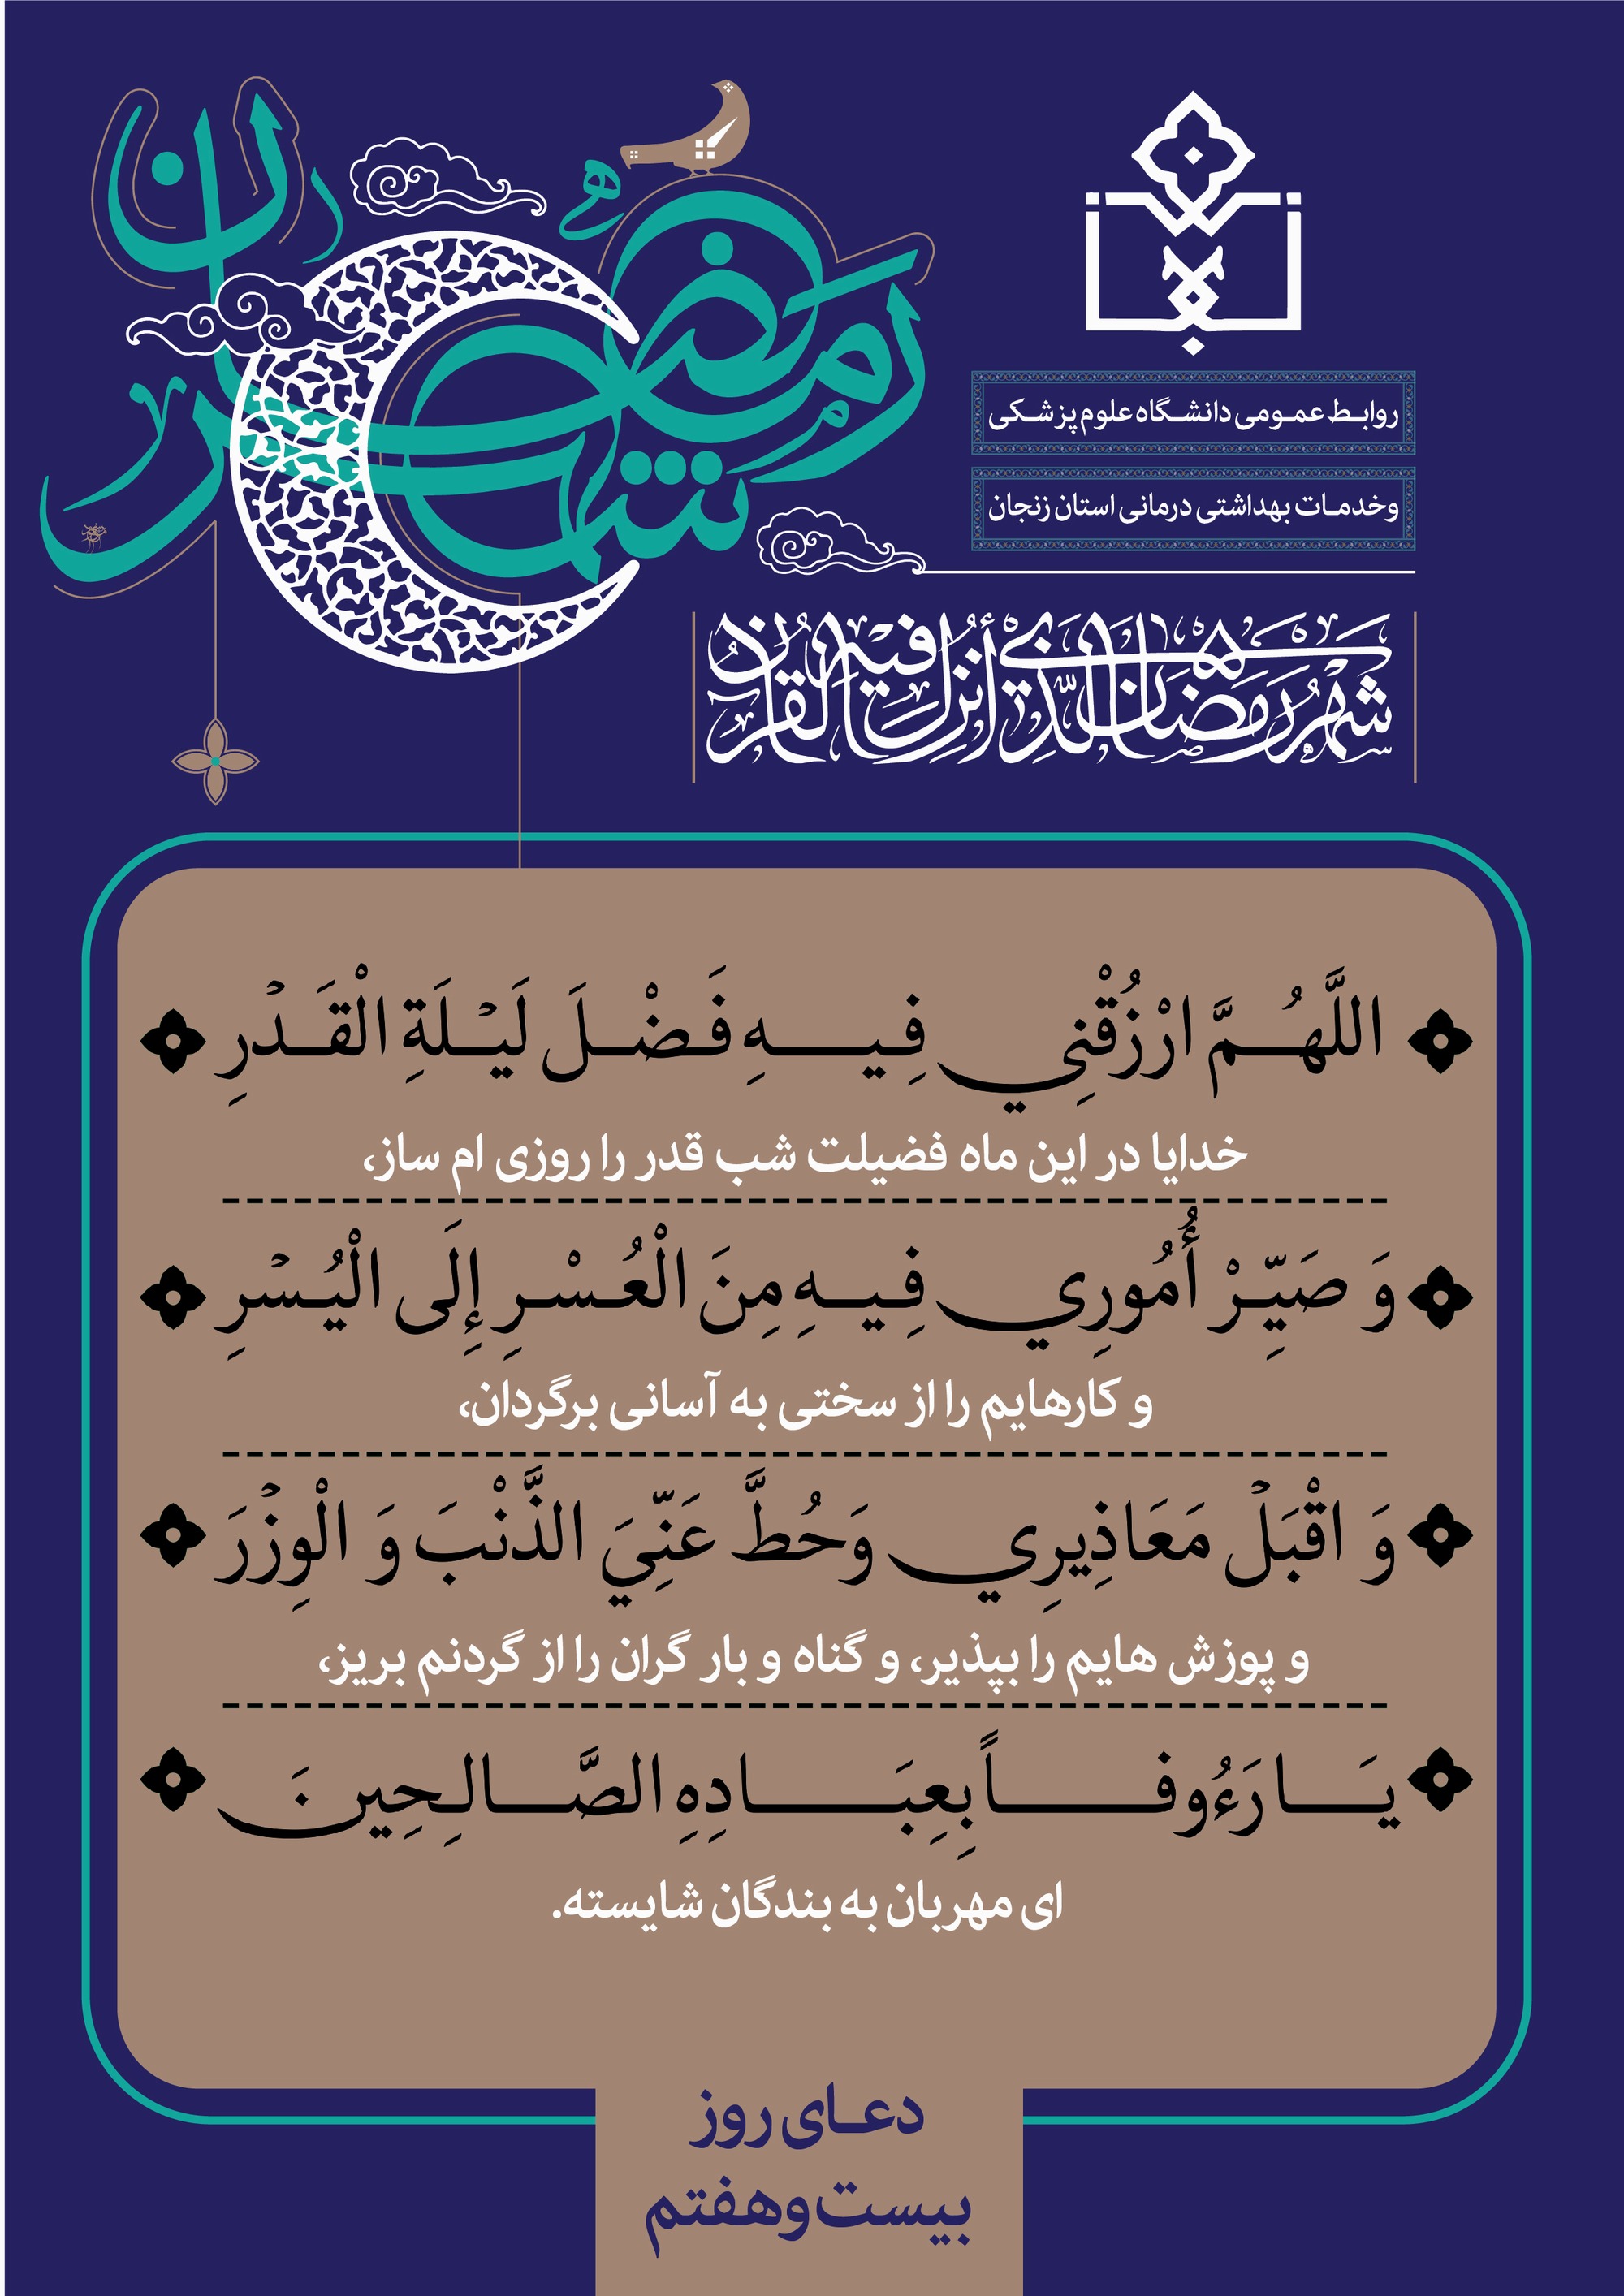 شهر رمضان
روابط عمومی دانشگاه علوم پزشکی
وخدمات بهداشتی درمانی استان زنجان
شَهْرُ رَمَضَانَ الَّذِي أُنْزِلَ فِيهِ الْقُرْآنُ
اللَّهُمَّ ارْزُقْنِي فِيهِ فَضْلَ لَيْلَةِ الْقَدْرِ
خدایا در این ماه فضیلت شب قدر را روزی ام ساز،
وَ صَيِّرْ أُمُورِي فِيهِ مِنَ الْعُسْرِ إِلَى الْيُسْرِ
و کارهایم را از سختی به آسانی برگردان،
وَ اقْبَلْ مَعَاذِيرِي وَحُطَّ عَنِّيَ الذَّنْبَ وَ الْوِزْرَ
و پوزش هایم را بپذیر، و گناه و بار گران را از گردنم بریز،
يَا رَءُوفاً بِعِبَادِهِ الصَّالِحِينَ
ای مهربان به بندگان شایسته.
دعای روز
بیست‌وهفتم